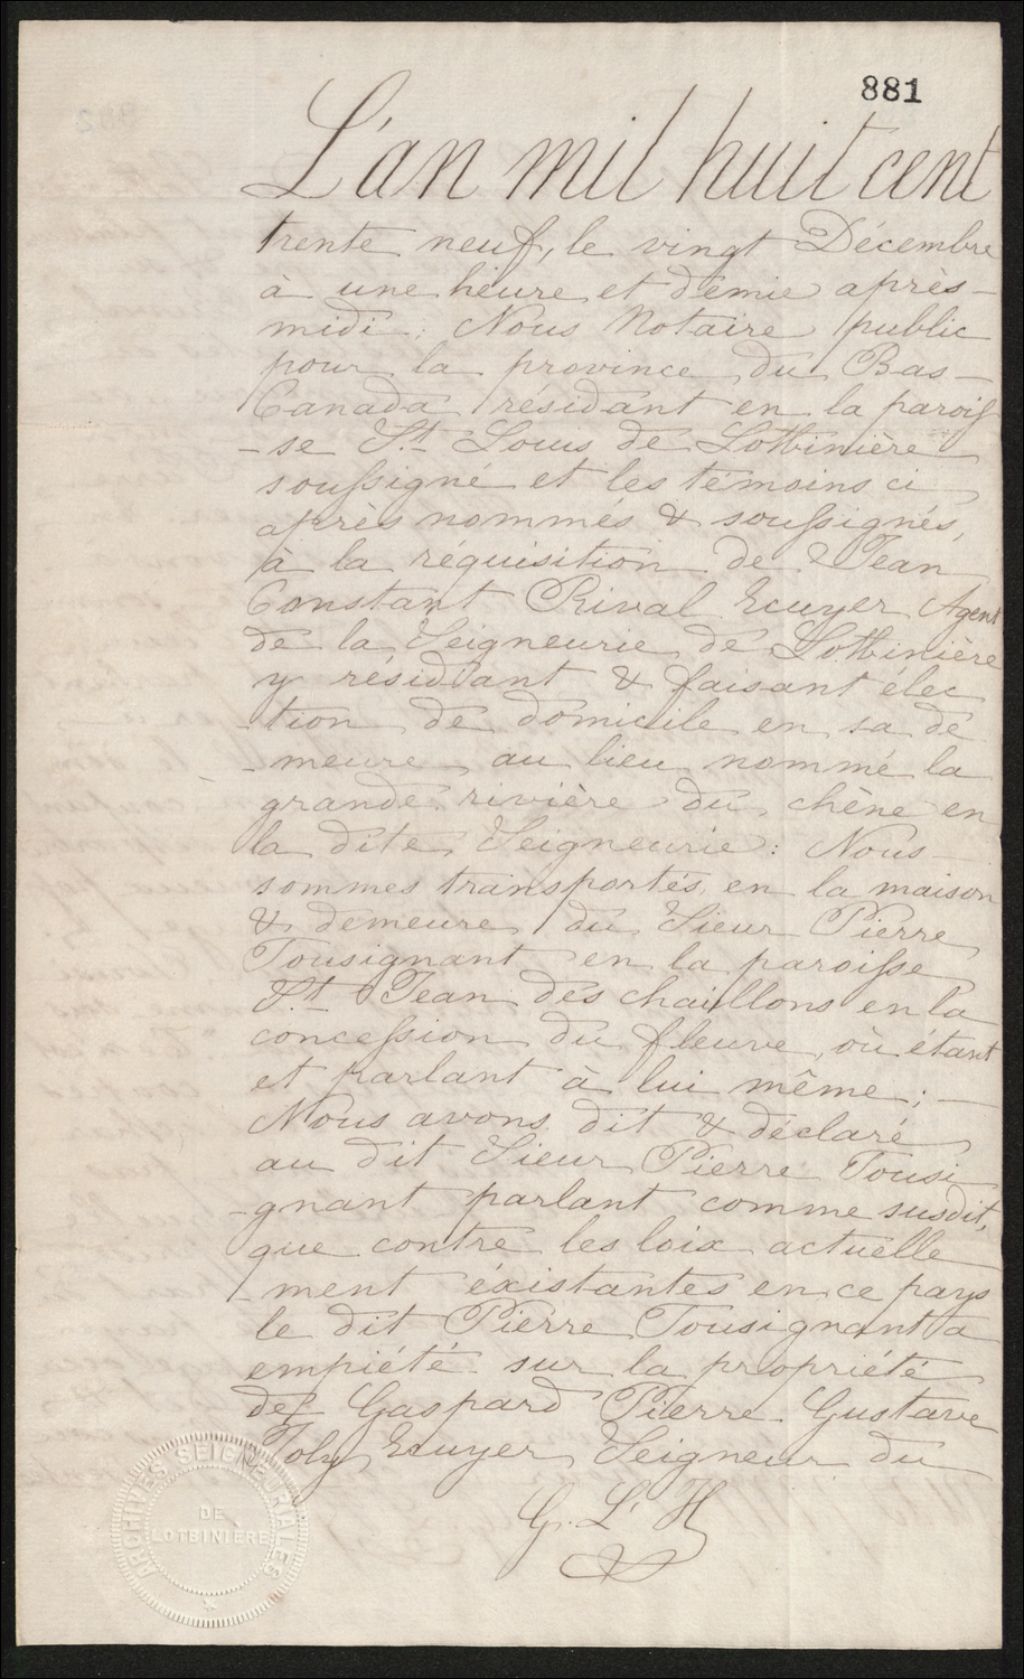 881
L'an mil huit cent
trente neuf, le vingt Décembre
à une heure et demie après-
midi; Nous Notaire public
pour la province du Bas-
Canada résidant en la parois
-se St. Louis de Lotbinière
soussigné et les témoins ci
après nommés & soussignés,
à la réquisition de Jean
Constant Rival Ecuyer Agent
de la Seigneurie de Lotbinière
y résidant & faisant élec
tion de domicile en sa de
-meure au lieu nommé la
grande rivière du chêne en
la dite Seigneurie: Nous
sommes transportés en la maison
& demeure du Sieur Pierre
Tousignant en la paroisse
St. Jean des chaillons en la
concession du fleuve, où étant
et parlant à lui même; —
Nous avons dit & déclaré
au dit Sieur Pierre Tousi
-gnant parlant comme susdit,
que contre les loix actuelle
-ment éxistantes en ce pays
le dit Pierre Tousignant a
empiété sur la propriété
de Gaspard Pierre Gustave
Joly Ecuyer Seigneur du
G. L' H
ARCHIVES SEIGNEURIALES
DE
LOTBINIERE